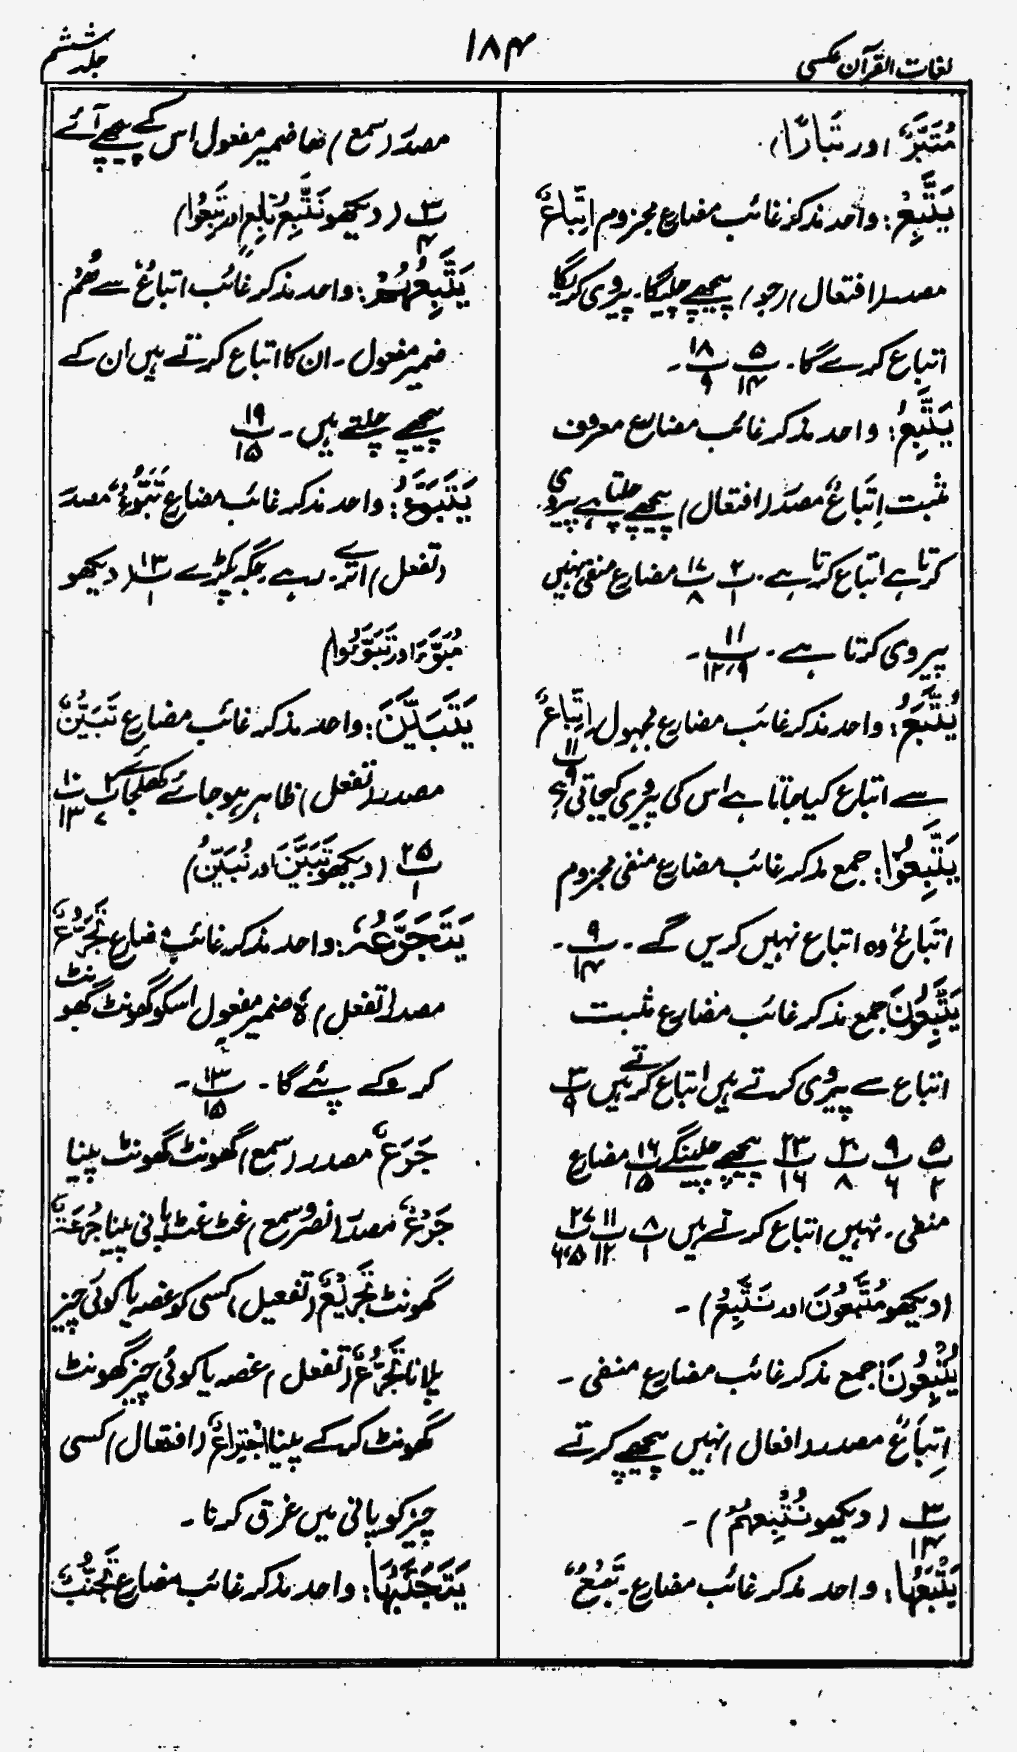 لغات القرآن عکسی
۱۸۴
جلد ششم
مُتَبَّرٌ اور تَبَارًا)
یَتَّبِعْ: واحد مذکر غائب مضارع مجزوم اِتِّبَاعٌ
مصدر (افتعال) (رجو) پیچھے چلیگا۔ پیروی کریگا
اتباع کرے گا۔ ۵ پ ۱۴ ۱۸ پ ۹ ۔
یَتَّبِعُ: واحد مذکر غائب مضارع معروف
مثبت اِتِّبَاعٌ مصدر (افتعال) پیچھے چلتا ہے پیروی
کرتا ہے اتباع کرتا ہے۔ ۲ پ ۱ ۱۷ پ ۸ مضارع منفی نہیں
پیروی کرتا ہے۔ ۱۱ پ ۹،۱۲ ۔
یُتَّبَعُ: واحد مذکر غائب مضارع مجہول اِتِّبَاعٌ
سے اتباع کیا جاتا ہے اس کی پیروی کیجاتی ہے ۱۱ پ ۹
یَتَّبِعُوْا: جمع مذکر غائب مضارع منفی مجزوم
اتباعٌ وہ اتباع نہیں کریں گے۔ ۹ پ ۱۴ ۔
یَتَّبِعُوْنَ جمع مذکر غائب مضارع مثبت
اتباع سے پیروی کرتے ہیں اتباع کرتے ہیں ۳ پ ۹
۵ پ ۲ ۹ پ ۶ ۳ پ ۸ ۲۳ پ ۱۶ پیچھے چلینگے ۱۶ پ ۱۵ مضارع
منفی۔ نہیں اتباع کرتے ہیں ۸ پ ۱ ۱۱ پ ۱۲ ۲۷ پ ۶،۵
(دیکھو مُتَّبَعُوْنَ اور نَتَّبِعُ)۔
یُتْبِعُوْنَ: جمع مذکر غائب مضارع منفی۔
اِتْبَاعٌ مصدر (افعال) نہیں پیچھے کرتے
۳ پ ۱۴ (دیکھو نُتْبِعُہُمْ)۔
یَتْبَعُہَا: واحد مذکر غائب مضارع۔ تَبْعٌ
مصدر (سمع) ھا ضمیر مفعول اس کے پیچھے آئے
۳ پ ۴ (دیکھو نَتَّبِعُ تَابِعٍ اور تَبِعُوْا)
یَتَّبِعُہُمْ: واحد مذکر غائب اتباعٌ سے ھُمْ
ضمیر مفعول۔ ان کا اتباع کرتے ہیں ان کے
پیچھے چلتے ہیں۔ ۱۹ پ ۱۵
یَتَبَوَّءُ: واحد مذکر غائب مضارع تَبَوُّءٌ مصدر
(تفعل) اترے۔ رہے جگہ پکڑے ۱۳ پ ۱ (دیکھو
مُبَوَّءَ اور تَبَوَّءُوا)
یَتَبَیَّنَ: واحد مذکر غائب مضارع تَبَیُّنٌ
مصدر (تفعل) ظاہر ہو جائے کھل جائے ۲ پ ۷ ۱۰ پ ۱۳
۲۵ پ ۱ (دیکھو تَبَیَّنَ اور نُبَیِّنُ)
یَتَجَرَّعُہٗ: واحد مذکر غائب مضارع تَجَرُّعٌ
مصدر (تفعل) ہٗ ضمیر مفعول اسکو گھونٹ گھونٹ
کر کے پئے گا۔ ۱۳ پ ۱۵ ۔
جَرَعٌ مصدر (سمع) گھونٹ گھونٹ پینا
جَرْعٌ مصدر (نصر و سمع) غٹ غٹ پانی پینا جُرْعَۃٌ
گھونٹ تَجْرِیْعٌ (تفعیل) کسی کو غصہ یا کوئی چیز
پلانا تَجَرُّعٌ (تفعل) غصہ یا کوئی چیز گھونٹ
گھونٹ کر کے پینا اِجْتِرَاعٌ (افتعال) کسی
چیز کو پانی میں غرق کرنا۔
یَتَجَنَّبُہَا: واحد مذکر غائب مضارع تَجَنُّبٌ